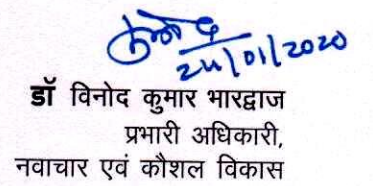 24/01/2020
डॉ विनोद कुमार भारद्वाज
प्रभारी अधिकारी,
नवाचार एवं कौशल विकास